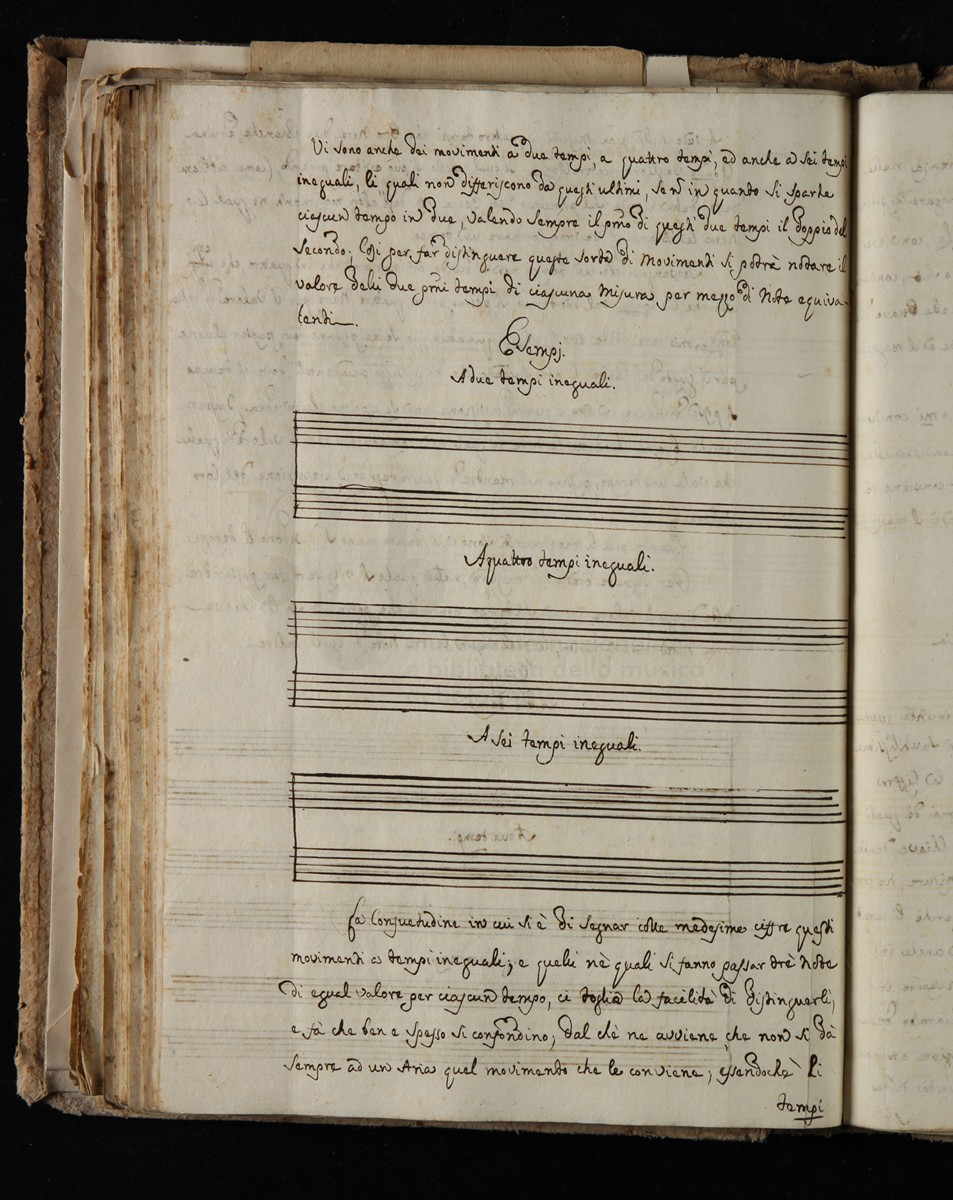 Vi sono anche dei movimenti a due tempi, a quattro tempi, ed anche a sei tempi
ineguali, li quali non differiscono da questi ultimi, se nō in quanto si sparte
ciascun tempo in due, valendo sempre il pr̃mo di questi due tempi il doppio del
secondo; Così per far distinguere queste sorte di movimenti si potrà notare il
valore delli due pr̃mi tempi di ciascuna Misura per mezzo di Note equiva-
lenti.
Esempj.
A due tempi ineguali.
A quattro tempi ineguali.
e biblioteca della musica
A sei tempi ineguali.
La Consuetudine in cui si è di segnar colle medesime ciffre questi
movimenti a tempi ineguali; e quelli nè quali si fanno passar trè Note
di egual valore per ciascun tempo, ci toglie la facilità di distinguerli,
e fà che ben e spesso si confondino; dal chè ne avviene che non si dà
sempre ad un Aria quel movimento che le conviene; essendochè li
tempi